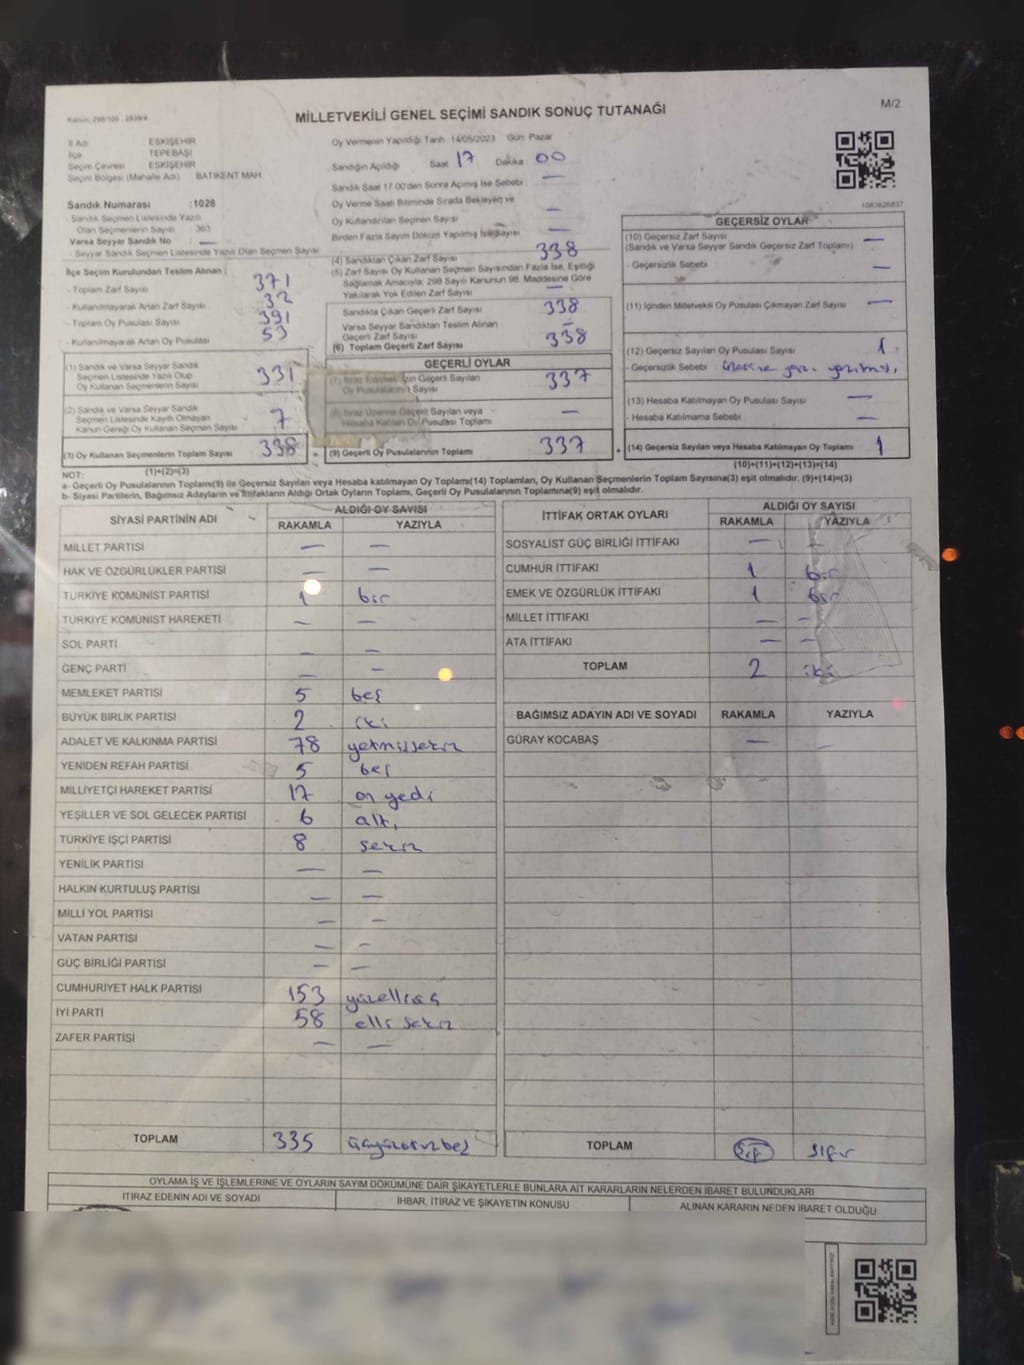 MİLLETVEKİLİ GENEL SEÇİMİ SANDIK SONUÇ TUTANAĞI
M/2
İl Adı ESKİŞEHİR
İlçe TEPEBAŞI
Seçim Çevresi ESKİŞEHİR
Seçim Bölgesi (Mahalle Adı) BATIKENT MAH.
Sandık Numarası :1028
- Sandık Seçmen Listesinde Yazılı
Olan Seçmenlerin Sayısı 363
Varsa Seyyar Sandık No —
- Seyyar Sandık Seçmen Listesinde Yazılı Olan Seçmen Sayısı
İlçe Seçim Kurulundan Teslim Alınan :
- Toplam Zarf Sayısı 371
- Kullanılmayarak Artan Zarf Sayısı 32
- Toplam Oy Pusulası Sayısı 391
- Kullanılmayarak Artan Oy Pusulası 53
(1) Sandık ve Varsa Seyyar Sandık
Seçmen Listesinde Yazılı Olup
Oy Kullanan Seçmenlerin Sayısı 331
(2) Sandık ve Varsa Seyyar Sandık
Seçmen Listesinde Kayıtlı Olmayan
Kanun Gereği Oy Kullanan Seçmen Sayısı 7
(3) Oy Kullanan Seçmenlerin Toplam Sayısı 338
(1)+(2)=(3)
Oy Vermenin Yapıldığı Tarih 14/05/2023 Gün Pazar
Sandığın Açıldığı Saat 17 Dakika 00
Sandık Saat 17.00'den Sonra Açılmış İse Sebebi —
Oy Verme Saati Bitiminde Sırada Bekleyen ve
Oy Kullandırılan Seçmen Sayısı —
Birden Fazla Sayım Döküm Yapılmış İse Sayısı —
(4) Sandıktan Çıkan Zarf Sayısı 338
(5) Zarf Sayısı Oy Kullanan Seçmen Sayısından Fazla İse, Eşitliği
Sağlamak Amacıyla, 298 Sayılı Kanunun 98. Maddesine Göre
Yakılarak Yok Edilen Zarf Sayısı —
Sandıkta Çıkan Geçerli Zarf Sayısı 338
Varsa Seyyar Sandıktan Teslim Alınan
Geçerli Zarf Sayısı —
(6) Toplam Geçerli Zarf Sayısı 338
GEÇERLİ OYLAR
(7) İtiraz Edilmeksizin Geçerli Sayılan
Oy Pusulalarının Sayısı 337
(8) İtiraz Üzerine Geçerli Sayılan veya
Hesaba Katılan Oy Pusulası Toplamı —
(9) Geçerli Oy Pusulalarının Toplamı 337
1083626837
GEÇERSİZ OYLAR
(10) Geçersiz Zarf Sayısı —
(Sandık ve Varsa Seyyar Sandık Geçersiz Zarf Toplamı)
- Geçersizlik Sebebi —
(11) İçinden Milletvekili Oy Pusulası Çıkmayan Zarf Sayısı —
(12) Geçersiz Sayılan Oy Pusulası Sayısı 1
- Geçersizlik Sebebi üzerine yazı yazılmış
(13) Hesaba Katılmayan Oy Pusulası Sayısı —
- Hesaba Katılmama Sebebi —
(14) Geçersiz Sayılan veya Hesaba Katılmayan Oy Toplamı 1
(10)+(11)+(12)+(13)=(14)
NOT:
a- Geçerli Oy Pusulalarının Toplamı(9) ile Geçersiz Sayılan veya Hesaba katılmayan Oy Toplamı(14) Toplamları, Oy Kullanan Seçmenlerin Toplam Sayısına(3) eşit olmalıdır. (9)+(14)=(3)
b- Siyasi Partilerin, Bağımsız Adayların ve İttifakların Aldığı Ortak Oyların Toplamı, Geçerli Oy Pusulalarının Toplamına(9) eşit olmalıdır.
SİYASİ PARTİNİN ADI ALDIĞI OY SAYISI
RAKAMLA YAZIYLA
MİLLET PARTİSİ — —
HAK VE ÖZGÜRLÜKLER PARTİSİ — —
TÜRKİYE KOMÜNİST PARTİSİ 1 bir
TÜRKİYE KOMÜNİST HAREKETİ — —
SOL PARTİ — —
GENÇ PARTİ — —
MEMLEKET PARTİSİ 5 beş
BÜYÜK BİRLİK PARTİSİ 2 iki
ADALET VE KALKINMA PARTİSİ 78 yetmişsekiz
YENİDEN REFAH PARTİSİ 5 beş
MİLLİYETÇİ HAREKET PARTİSİ 17 on yedi
YEŞİLLER VE SOL GELECEK PARTİSİ 6 altı
TÜRKİYE İŞÇİ PARTİSİ 8 sekiz
YENİLİK PARTİSİ — —
HALKIN KURTULUŞ PARTİSİ — —
MİLLİ YOL PARTİSİ — —
VATAN PARTİSİ — —
GÜÇ BİRLİĞİ PARTİSİ — —
CUMHURİYET HALK PARTİSİ 153 yüzelliüç
İYİ PARTİ 58 elli sekiz
ZAFER PARTİSİ — —
TOPLAM 335 üçyüzotuzbeş
İTTİFAK ORTAK OYLARI ALDIĞI OY SAYISI
RAKAMLA YAZIYLA
SOSYALİST GÜÇ BİRLİĞİ İTTİFAKI — —
CUMHUR İTTİFAKI 1 bir
EMEK VE ÖZGÜRLÜK İTTİFAKI 1 bir
MİLLET İTTİFAKI — —
ATA İTTİFAKI — —
TOPLAM 2 iki
BAĞIMSIZ ADAYIN ADI VE SOYADI RAKAMLA YAZIYLA
GÜRAY KOCABAŞ — —
TOPLAM sıfır
OYLAMA İŞ VE İŞLEMLERİNE VE OYLARIN SAYIM DÖKÜMÜNE DAİR ŞİKAYETLERLE BUNLARA AİT KARARLARIN NELERDEN İBARET BULUNDUKLARI
İTİRAZ EDENİN ADI VE SOYADI İHBAR, İTİRAZ VE ŞİKAYETİN KONUSU ALINAN KARARIN NEDEN İBARET OLDUĞU